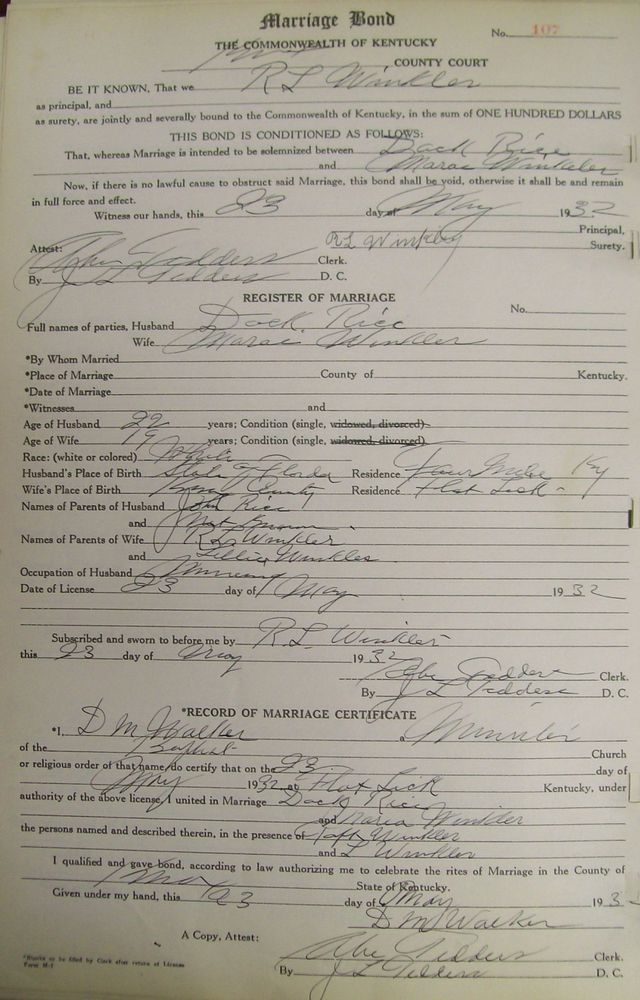 Marriage Bond
No. 107
THE COMMONWEALTH OF KENTUCKY
COUNTY COURT
BE IT KNOWN, That we R L Winkler
as principal, and
as surety, are jointly and severally bound to the Commonwealth of Kentucky, in the sum of ONE HUNDRED DOLLARS
THIS BOND IS CONDITIONED AS FOLLOWS:
That, whereas Marriage is intended to be solemnized between Dock Rice
and Winkler
Now, if there is no lawful cause to obstruct said Marriage, this bond shall be void, otherwise it shall be and remain
in full force and effect.
Witness our hands, this 23 day of May 1932
R L Winkler Principal,
Surety.
Attest: Abe Tedders Clerk.
By J L Tedders D. C.
REGISTER OF MARRIAGE
No.
Full names of parties, Husband Dock Rice
Wife Winkler
*By Whom Married
*Place of Marriage County of Kentucky.
*Date of Marriage
*Witnesses and
Age of Husband 22 years; Condition (single, widowed, divorced)
Age of Wife 19 years; Condition (single, widowed, divorced)
Race: (white or colored) White
Husband's Place of Birth State of Residence Four Mile Ky
Wife's Place of Birth Knox County Residence Flat Lick
Names of Parents of Husband John Rice
and
Names of Parents of Wife R L Winkler
and Lillie Winkler
Occupation of Husband Mining
Date of License 23 day of May 1932
Subscribed and sworn to before me by R. L. Winkler
this 23 day of May 1932
Abe Tedders Clerk.
By J L Tedders D. C.
*RECORD OF MARRIAGE CERTIFICATE
*I, D M Walker a Minister
of the Baptist Church
or religious order of that name, do certify that on the 23 day of
May 1932 at Flat Lick Kentucky, under
authority of the above license, I united in Marriage Dock Rice
and Winkler
the persons named and described therein, in the presence of Taft Winkler
and L Winkler
I qualified and gave bond, according to law authorizing me to celebrate the rites of Marriage in the County of
State of Kentucky.
Given under my hand, this 23 day of May 193
D M Walker
A Copy, Attest: Abe Tedders Clerk.
*Blanks to be filed by Clerk after return of License
Form M-1
By J L Tedders D. C.